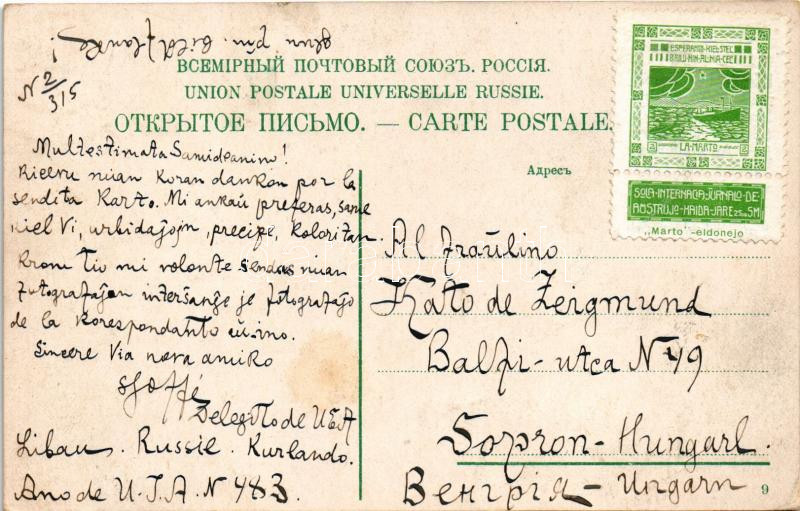 N 2/315
ВСЕМІРНЫЙ ПОЧТОВЫЙ СОЮЗЪ. РОССІЯ.
UNION POSTALE UNIVERSELLE RUSSIE.
ОТКРЫТОЕ ПИСЬМО. — CARTE POSTALE.
Multestimata Samideanino!
Ricevu mian koran dankon por la
sendita Karto. Mi ankaŭ preferas, same
kiel Vi, urbidaĵojn, precipe, koloritan.
Krom tio mi volonte sendas mian
fotografaĵon interŝanĝe je fotografaĵo
de la korespondanto aŭ ino.
Sincere Via nova amiko
Delegito de UEA
Libau. Russie. Kurlando.
Ano de U.T.A. N 483.
Адресъ
Al fraŭlino
Kato de Zeigmund
Balfi-utca N 49
Sopron-Hungarl.
Венгрія-Ungarn
9
ESPERANTO KIEL STEL
BRILU MIN ALTIRA CEL
LA-MARTO
SOLA-INTERNACIA-JURNALO-DE-
AŬSTRUJO-HAIDA-JARE
„Marto"-eldonejo